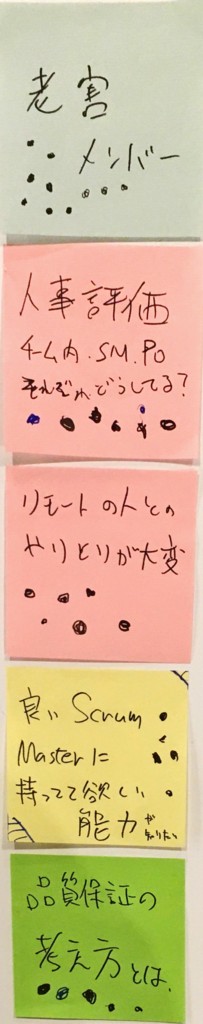 老害
メンバー
人事評価
チーム内.SM.PO
それぞれどうしてる?
リモートの人との
やりとりが大変
良い Scrum
Masterに
持ってて欲しい
能力が知りたい
品質保証の
考え方とは.